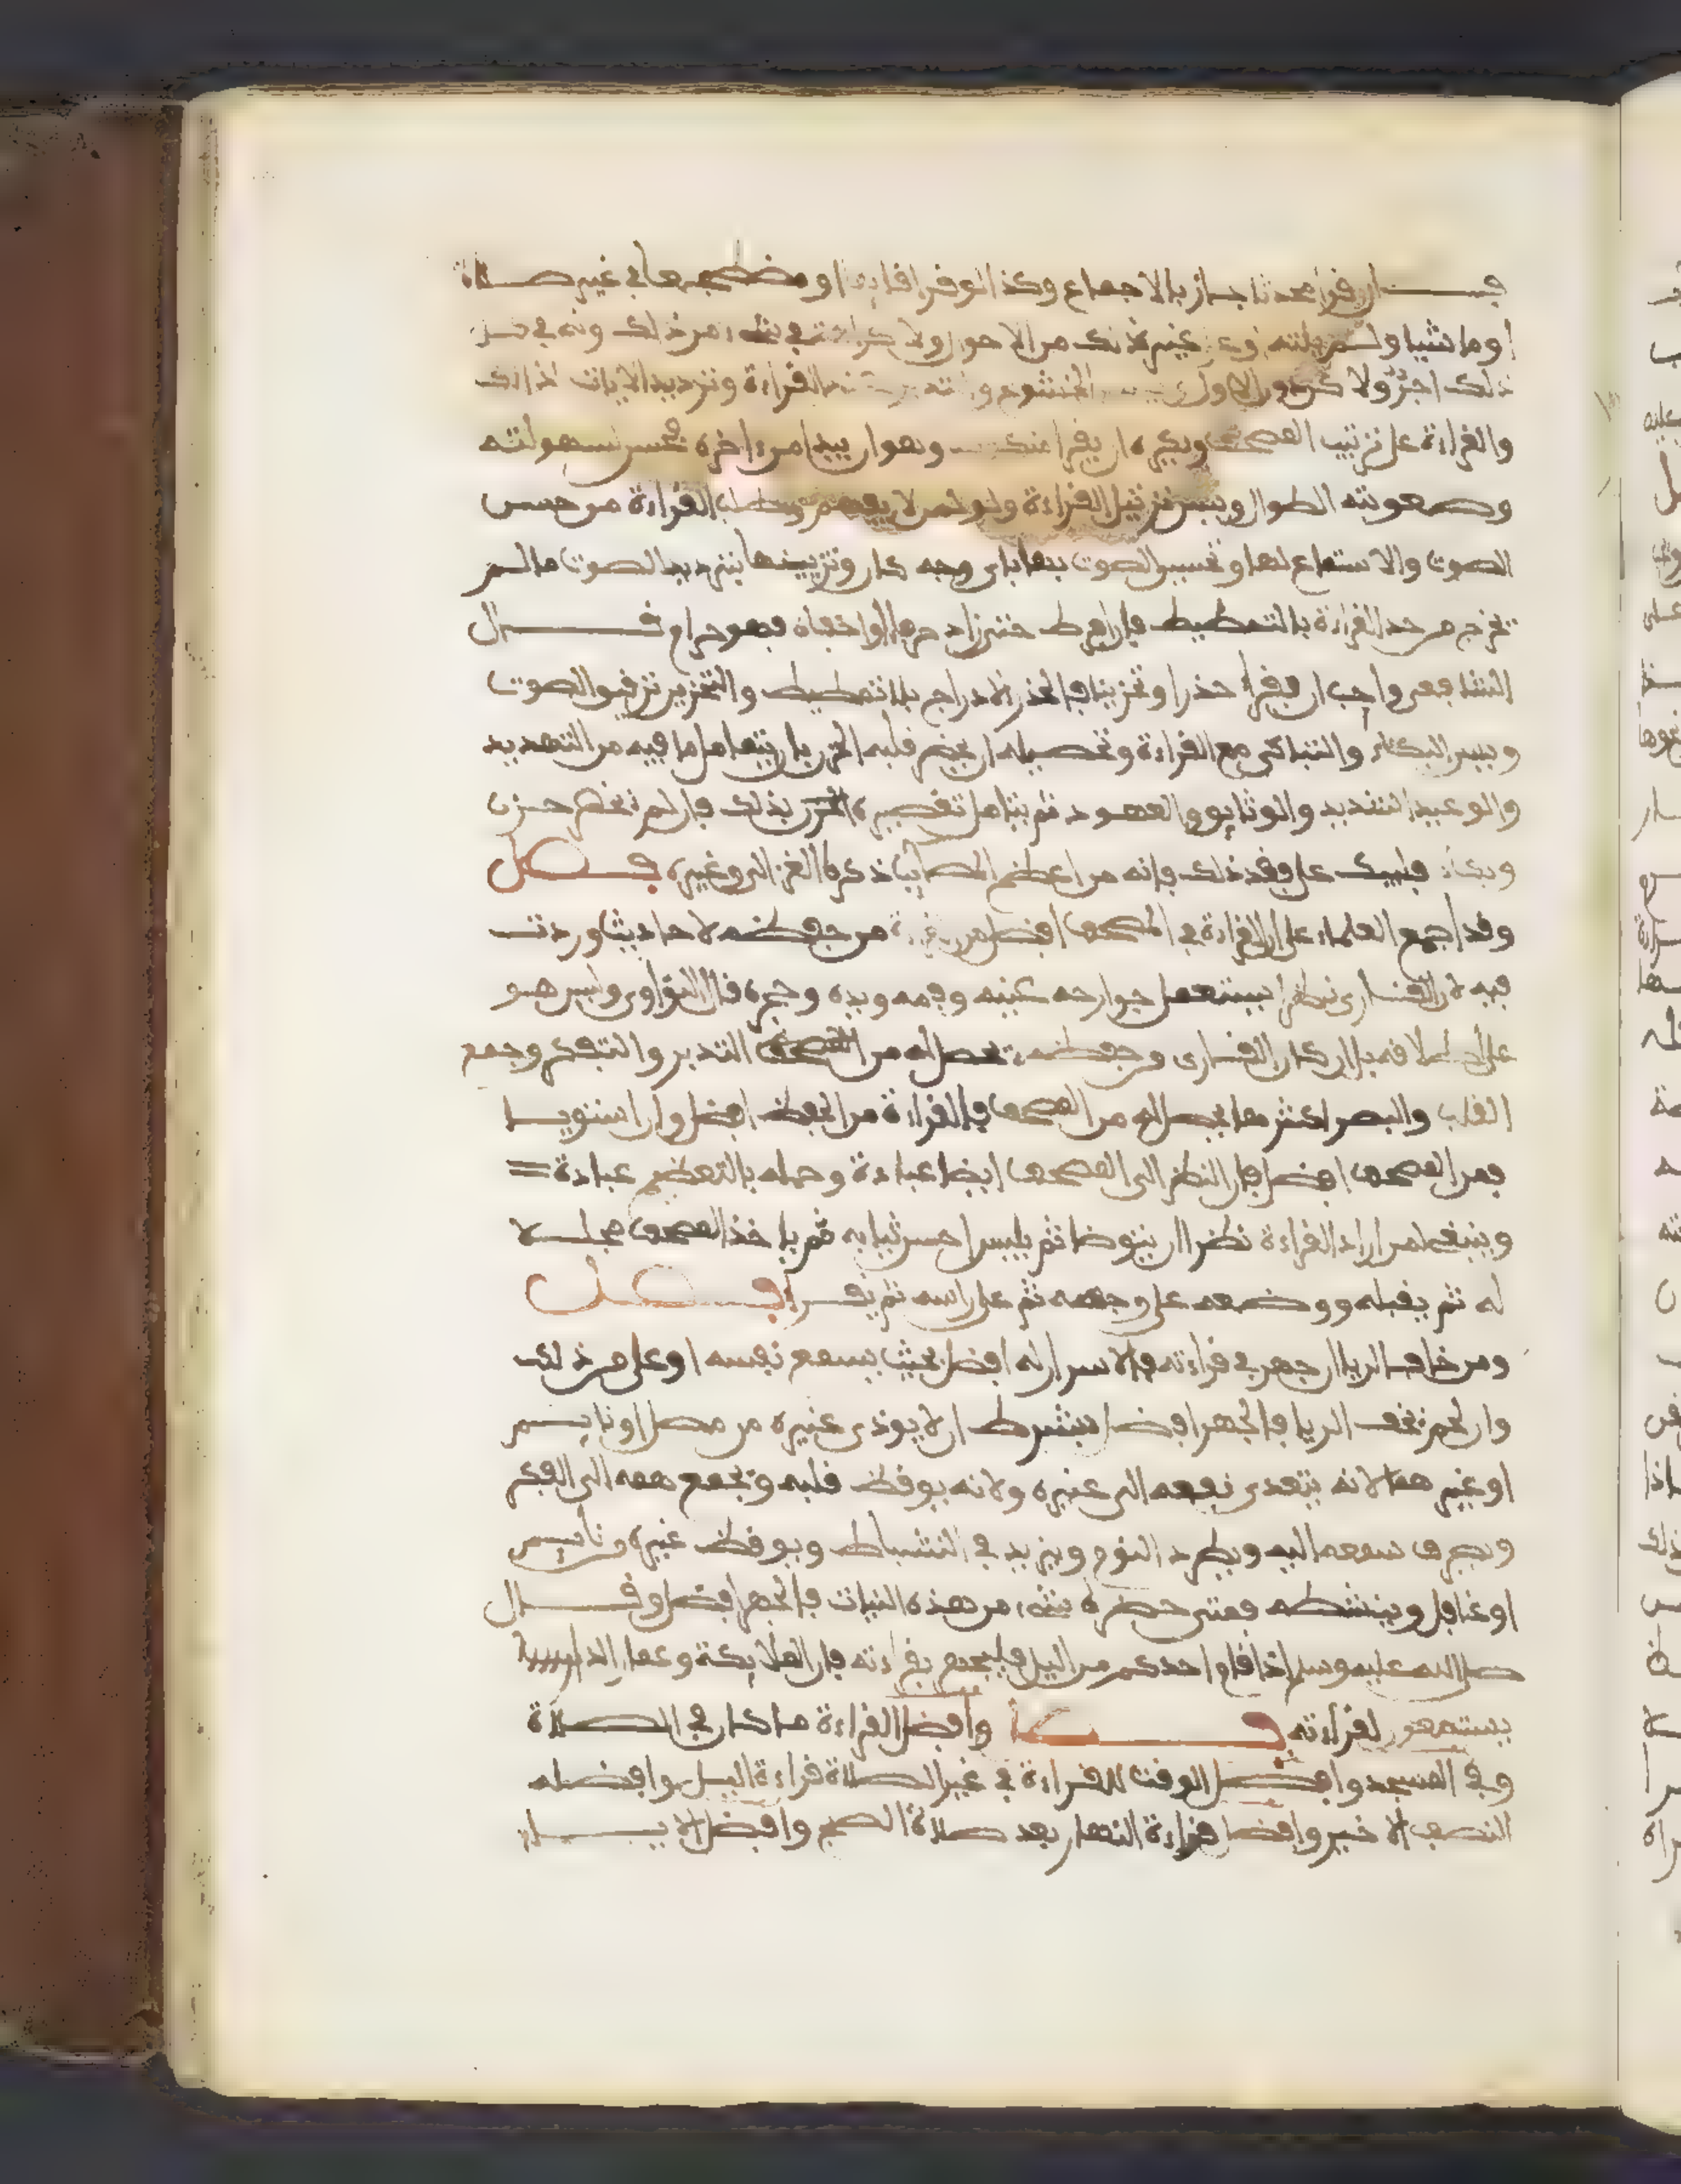 فإن قرأ محدثا جاز بالإجماع وكذا لو قرأ قائما أو مضطجعا في غير صلاة
أو ماشيا ولم يلته وعن غير ذلك من الأحوال ولا كراهة في شيء من ذلك وله في
ذلك أجر ولا كن دون الأول الخشوع و القراءة وترديد الآيات لذلك
والقراءة على ترتيب المصحف ويكره أن يقرأ منكسا وهو أن يبدأ من ءاخره لحسن سهولته
وصعوبته الطوال ويسن ترتيل القراءة ولو لمن لا يفهم وطلب القراءة من حسن
الصوت والاستماع لها وتحسين الصوت بها بأي وجه كان وتزيينها بترديد الصوت ما لم
تخرج من حد القراءة بالتمطيط فإن أفرط حتى زاد حرفا أو أخفاه فهو حرام قال
الشافعي واحب أن يقرأ حذرا وتحزينا فالحذر الإدراج بلا تمطيط والتحزين ترقيق الصوت
ويسن البكاء والتباكي مع القراءة وتحصيله أن يحضر قلبه الحزن بأن يتأمل ما فيه من التهديد
والوعيد الشديد والوثايق والعهود ثم يتأمل تقصيره الحزن بذلك فإن لم تحضره حزن
وبكاء فليبك على فقد ذلك فإنه من أعظم المصائب ذكره الغزالي وغيره فصل
وقد أجمع العلماء على أن القراءة في المصحف أفضل من القراءة من حفظه لأحاديث وردت
فيه لأن القاري نظرا يستعمل جوارحه كعينه وفمه ويده وحجره قال النواوي وليس هو
على إطلاقه بل إن كان القاري من حفظه تحصل له من المصحف التدبر والتفكر وجمع
القلب والبصر أكثر مما يحصل له من المصحف فالقراءة من الحفظ أفضل وإن استويا
فمن المصحف أفضل فإن النظر إلى المصحف أيضا عبادة وحمله بالتعظيم عبادة =
وينبغي لمن أراد القراءة نظرا أن يتوضأ ثم يلبس أحسن ثيابه ثم يأخذ المصحف مجللا
له ثم يقبله ووضعه على وجهه ثم على راسه ثم يقرأ فصل
ومن خاف الريا إن جهر في قراءته فالإسرار له أفضل بحيث يسمع نفسه أو على من ذلك
وإن لم تخف الريا فالجهر أفضل بشرط أن لا يوذي غيره من مصل أو نايم
أو غيرهما لأنه يتعدى نفعه إلى غيره ولأنه يوقظ قلبه وتجمع همه إلى الفكر
ويصرف سمعه إليه ويطرد النوم ويزيد في النشاط ويوقظ غيره من نايم
أو غافل وينشطه فمتى حضره شيء من هذه النيات فالجهر أفضل وقال
صلى الله عليه وسلم إذا قام أحدكم من الليل فليجهر بقراءته فإن الملايكة وعمار الدار
يستمعون لقراءته فصل وأفضل القراءة ما كان في الصلاة
وفي المسجد وأفضل الوقت للقراءة في غير الصلاة قراءة الليل وأفضله
النصف الأخير وأفضل قراءة النهار بعد صلاة الصبح وأفضل الأيام